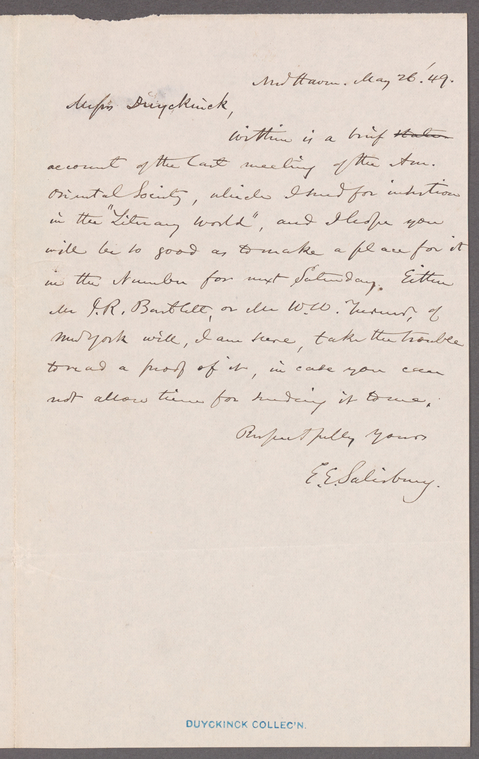 New Haven. May 26. '49.
Messrs Duyckinck,
Within is a brief
account of the last meeting of the Am.
Oriental Society, which I send for insertion
in the "Literary World", and I hope you
will be so good as to make a place for it
in the Number for next Saturday. Either
Mr J. R. Bartlett, or Mr W. W. Turner, of
New York will, I am sure, take the trouble
to read a proof of it, in case you can
not allow time for sending it to me.
Respectfully Yours
E. E. Salisbury.
DUYCKINCK COLLEC'N.